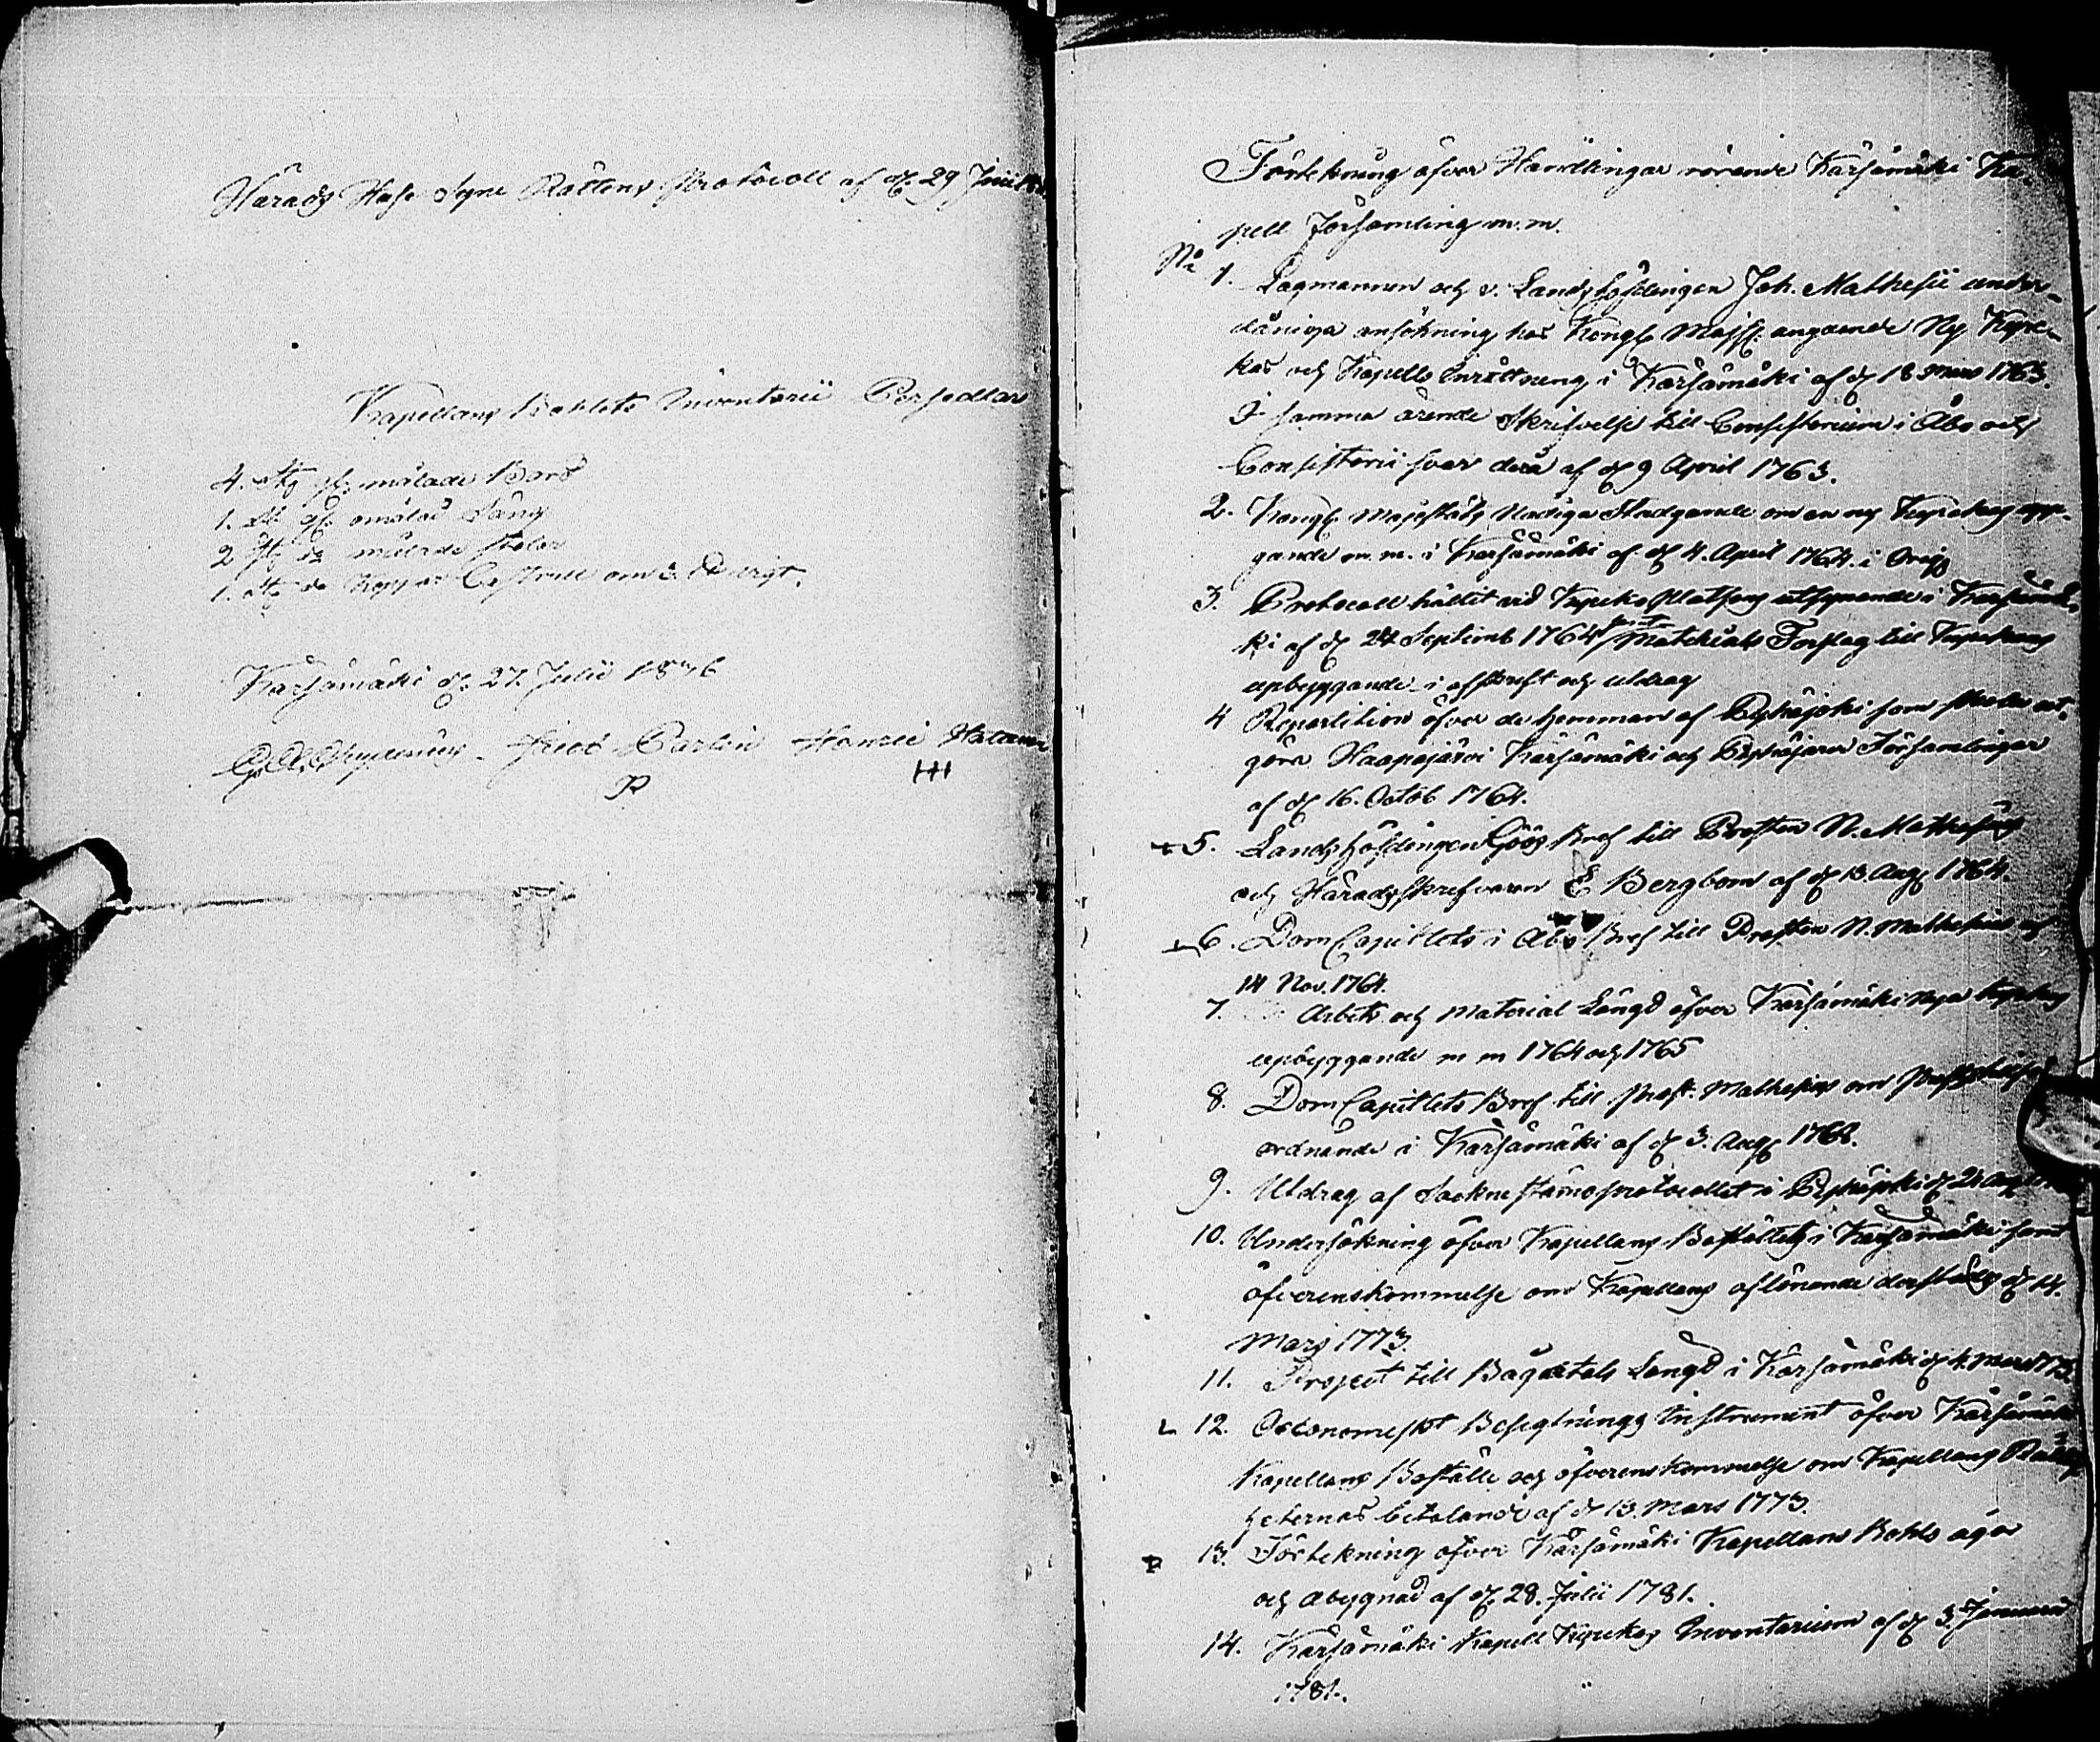 Härads Syne Rättens Protocoll af d. 29 Junii
Kapellans Bohlets Inventarii Persedlar
4. st. målade Bord
1. omålad Säng
2 st. målade stolar
1. st. Koppar Castrull om 3 vigt.
Kärsämäki d. 27. Julii 1846
Jacob Parlin Hatanen
Förtekning öfver Handlingar rörande Kärsämäki Ka-
pell Församling m.m.
No 1. Lagmannen och v. Landshöfdingen Joh. Mathesii under-
dåniga ansökning hos Kongl. Majst. angående Ny Kyr-
kas och Kapells Inrättning i Kärsämäki af d. 18 Mars 1763.
I samma ärende Skrifvelse till Consistorium i Åbo och
Consistorii svar derå af d. 9 April 1763.
2. Kongl. Majestäts Nådiga Stadgande om en ny Kyrckas upp-
gande m.m. i Kärsämäki af d. 4. April 1764. i Orig.
3. Protocoll hållit vid Kyrcko Platsens utsynande i Kärsämä-
ki af d. 24 Septemb 1764 samt Materials Förslag till Kyrckans
upbyggande i afskrift och utdrag
4 Repartition öfver de hemman af Pyhäjoki som skola ut-
göra Haapajärvi Kärsämäki och Pyhäjärvi Församlingar
af d. 16. Octob 1764.
+ 5. Landshöfdingen Bref till Prosten N. Mathesius
och Häradsskrifvaren E Bergbom af d. 13 Aug. 1764.
+ 6. DomCapitlets i Åbo Bref till Prosten N. Mathesius af
14 Nov. 1764.
7. Arbets och Material Längd öfver Kärsämäki nya kyrckas
upbyggande m m 1764 och 1765
8. DomCapitlets Bref till Prost. Mathesius om
ordnande i Kärsämäki af d. 3. Aug. 1768.
9. Utdrag af Sockne stämo protocollet i Pyhäjoki d. 21 Aug
10. Undersökning öfver Kapellans Boställets i Kärsämäki samt
öfverenskommelse om Kapellans aflönande derstädes d. 14.
Mars 1773.
11. Project till Längd i Kärsämäki d. 4. Mars 1773.
12. Oeconomiskt Besigtnings Instrument öfver Kärsämäki
Kapellans Boställe och öfverenskommelse om Kapellans Rättig-
heternas betalande af d. 13. Mars 1773.
13. Förtekning öfver Kärsämäki Kapellans Bohls ägor
och åbygnad af d. 28. Julii 1781.
14. Kärsämäki Kapell Kyrckas Inventarium af d. 3. Januarii
1781.